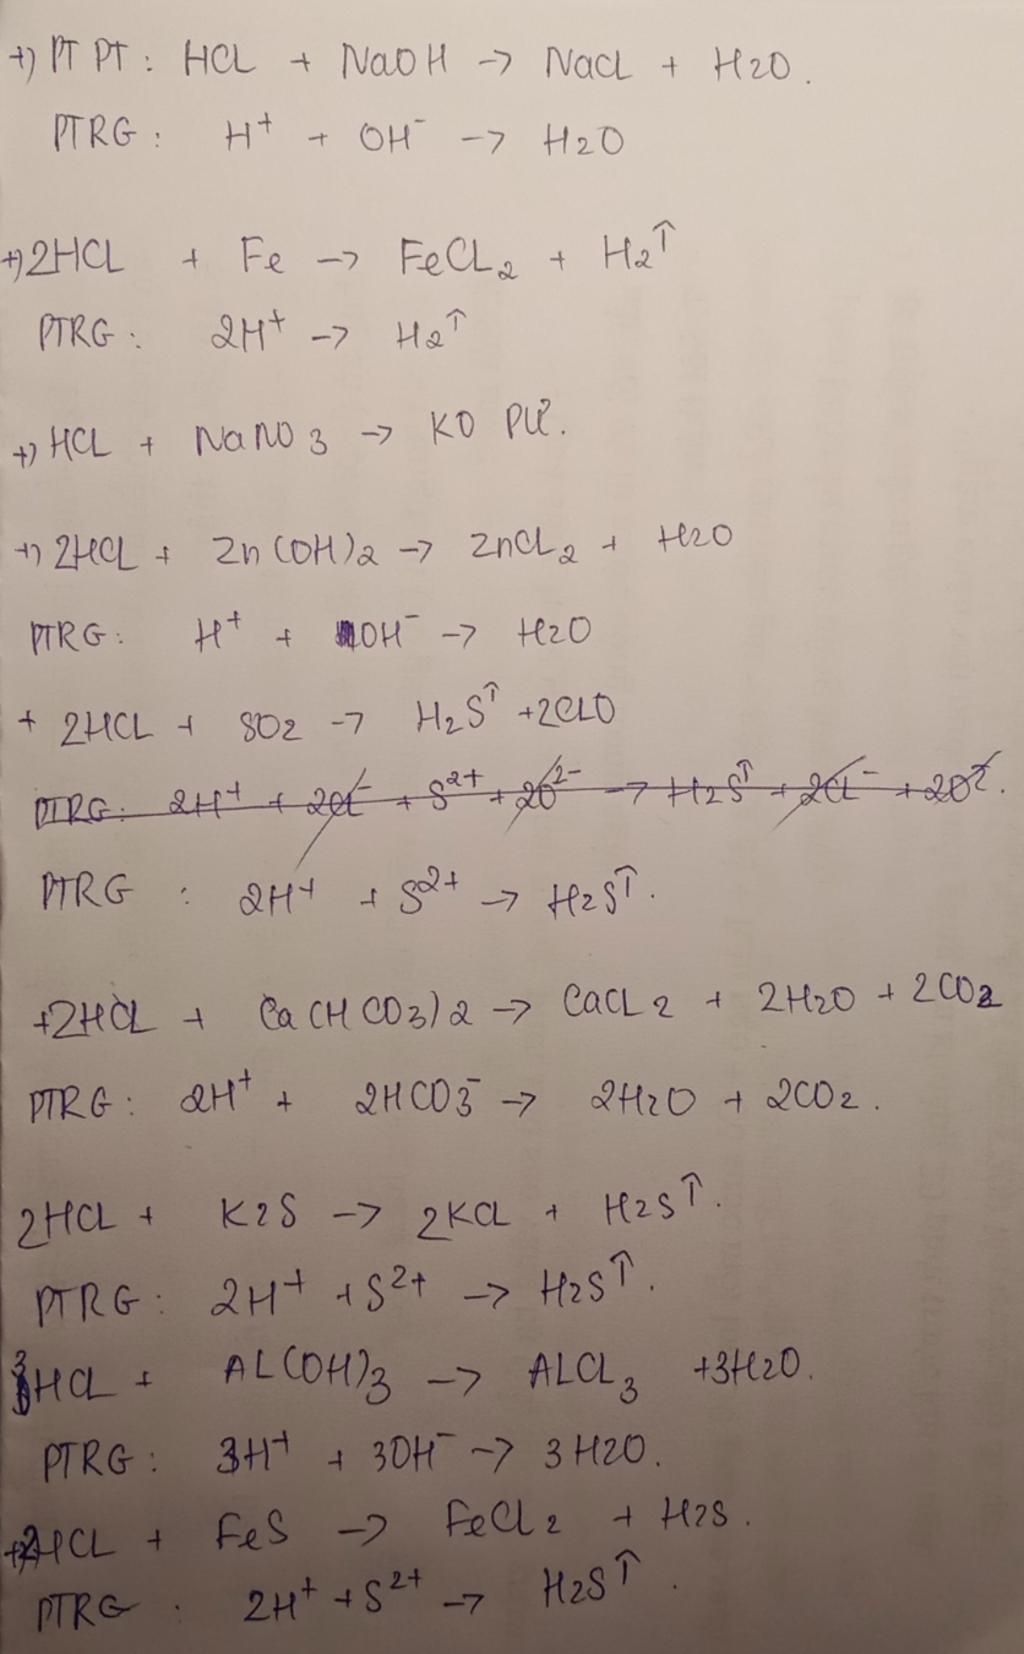 +) PTPT: HCL + NaOH -> NaCL + H2O.
PTRG: H⁺ + OH⁻ -> H2O
+) 2HCL + Fe -> FeCL₂ + H₂↑
PTRG: 2H⁺ -> H₂↑
+) HCL + NaNO3 -> KO PƯ.
+) 2HCL + Zn(OH)2 -> ZnCL2 + H2O
PTRG: H⁺ + OH⁻ -> H2O
+ 2HCL + SO2 -> H2S↑ + 2CLO
PTRG: 2H⁺ + 2CL⁻ + S²⁺ + 2O²⁻ -> H2S↑ + 2CL⁻ + 2O²⁻.
PTRG: 2H⁺ + S²⁺ -> H2S↑.
+ 2HCL + Ca(HCO3)2 -> CaCL2 + 2H2O + 2CO2
PTRG: 2H⁺ + 2HCO3⁻ -> 2H2O + 2CO2.
2HCL + K2S -> 2KCL + H2S↑.
PTRG: 2H⁺ + S²⁺ -> H2S↑.
3HCL + AL(OH)3 -> ALCL3 + 3H2O.
PTRG: 3H⁺ + 3OH⁻ -> 3H2O.
+) 2HCL + FeS -> FeCl2 + H2S.
PTRG: 2H⁺ + S²⁺ -> H2S↑.